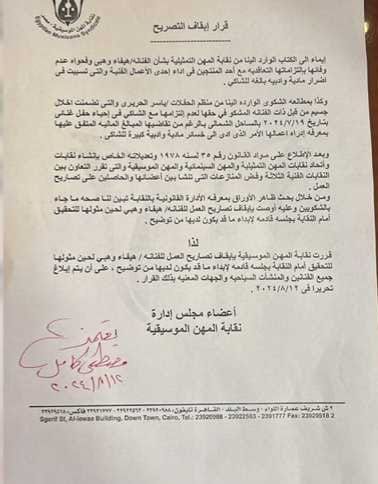 نقابة المهن الموسيقية
Egyptian Musicians Syndicate
قرار إيقاف التصريح
إيماء الى الكتاب الوارد الينا من نقابة المهن التمثيلية بشأن الفنانه/هيفاء وهبي وفحواه عدم
وفائها بإلتزاماتها التعاقديه مع أحد المنتجين فى اداء إحدى الأعمال الفنية والتى تسببت فى
أضرار مادية وأدبيه بالغه للشاكي .
وكذا بمطالعه الشكوى الوارده الينا من منظم الحفلات /ياسر الحريري والتى تضمنت اخلال
جسيم من قبل ذات الفنانه المشكو في حقها لعدم إلتزامها مع الشاكي فى إحياء حفل غنائى
بتاريخ ٢٠٢٤/٧/١٩ بالساحل الشمالي بالرغم من تقاضيها المبالغ الماليه المتفق عليها
بمعرفه إدراه اعمالها الأمر الذى ادى الى خسائر مادية وادبية كبيرة للشاكي.
وبعد الإطلاع على مواد القانون رقم ٣٥ لسنه ١٩٧٨ وتعديلاته الخاص بإنشاء نقابات
واتحاد نقابات المهن التمثيلية والمهن السينمائية والمهن الموسيقية والتى تقرر التعاون بين
النقابات الفنية الثلاثة وفض المنازعات التى تنشا بين أعضائها والحاصلين على تصاريح
العمل .
ومن خلال بحث ظاهر الأوراق بمعرفه الأدارة القانونية بالنقابة تبين لنا صحه ما جاء
بالشكويين وعليه أوصت بإيقاف تصاريح العمل للفنانه/ هيفاء وهبي لحين مثولها للتحقيق
أمام النقابة بجلسه قادمه لإبداء ما قد يكون لديها من توضيح .
لذا
قررت نقابة المهن الموسيقية بإيقاف تصاريح العمل للفنانه/ هيفاء وهبي لحين مثولها
للتحقيق أمام النقابة بجلسه قادمه لإبداء ما قد يكون لديها من توضيح ، على أن يتم إبلاغ
جميع الفنانين والمنشآت السياحيه والجهات المعنيه بذلك القرار .
تحريرا فى ٢٠٢٤/٨/١٢
أعضاء مجلس إدارة
نقابة المهن الموسيقية
يعتمد
مصطفى كامل
٢٠٢٤/٨/١٢
٩ ش شريف عمارة اللواء - وسط البلد - القاهرة
Sgerif St, Al-lewaa Building, Down Town, Cairo, Tel.: